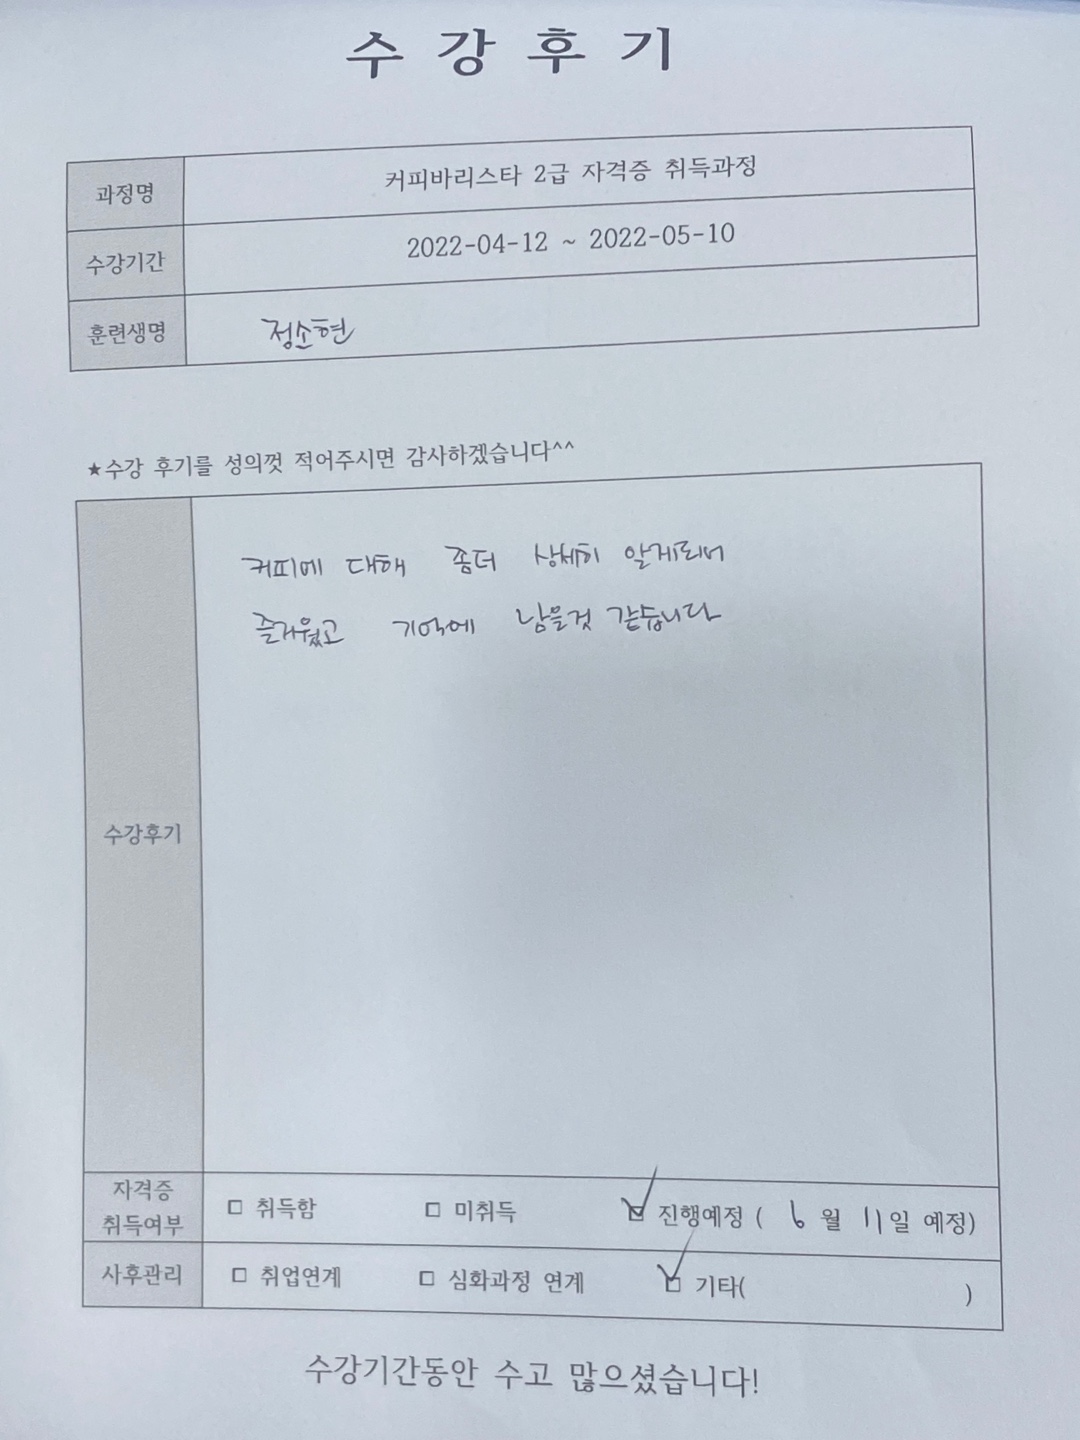 수 강 후 기
과정명 커피바리스타 2급 자격증 취득과정
수강기간 2022-04-12 ~ 2022-05-10
훈련생명 정소현
★수강 후기를 성의껏 적어주시면 감사하겠습니다^^
커피에 대해 좀더 상세히 알게되어
즐거웠고 기억에 남을것 같습니다
수강후기
자격증
취득여부 □ 취득함 □ 미취득 ☑ 진행예정 ( 6 월 11일 예정)
사후관리 □ 취업연계 □ 심화과정 연계 ☑ 기타( )
수강기간동안 수고 많으셨습니다!